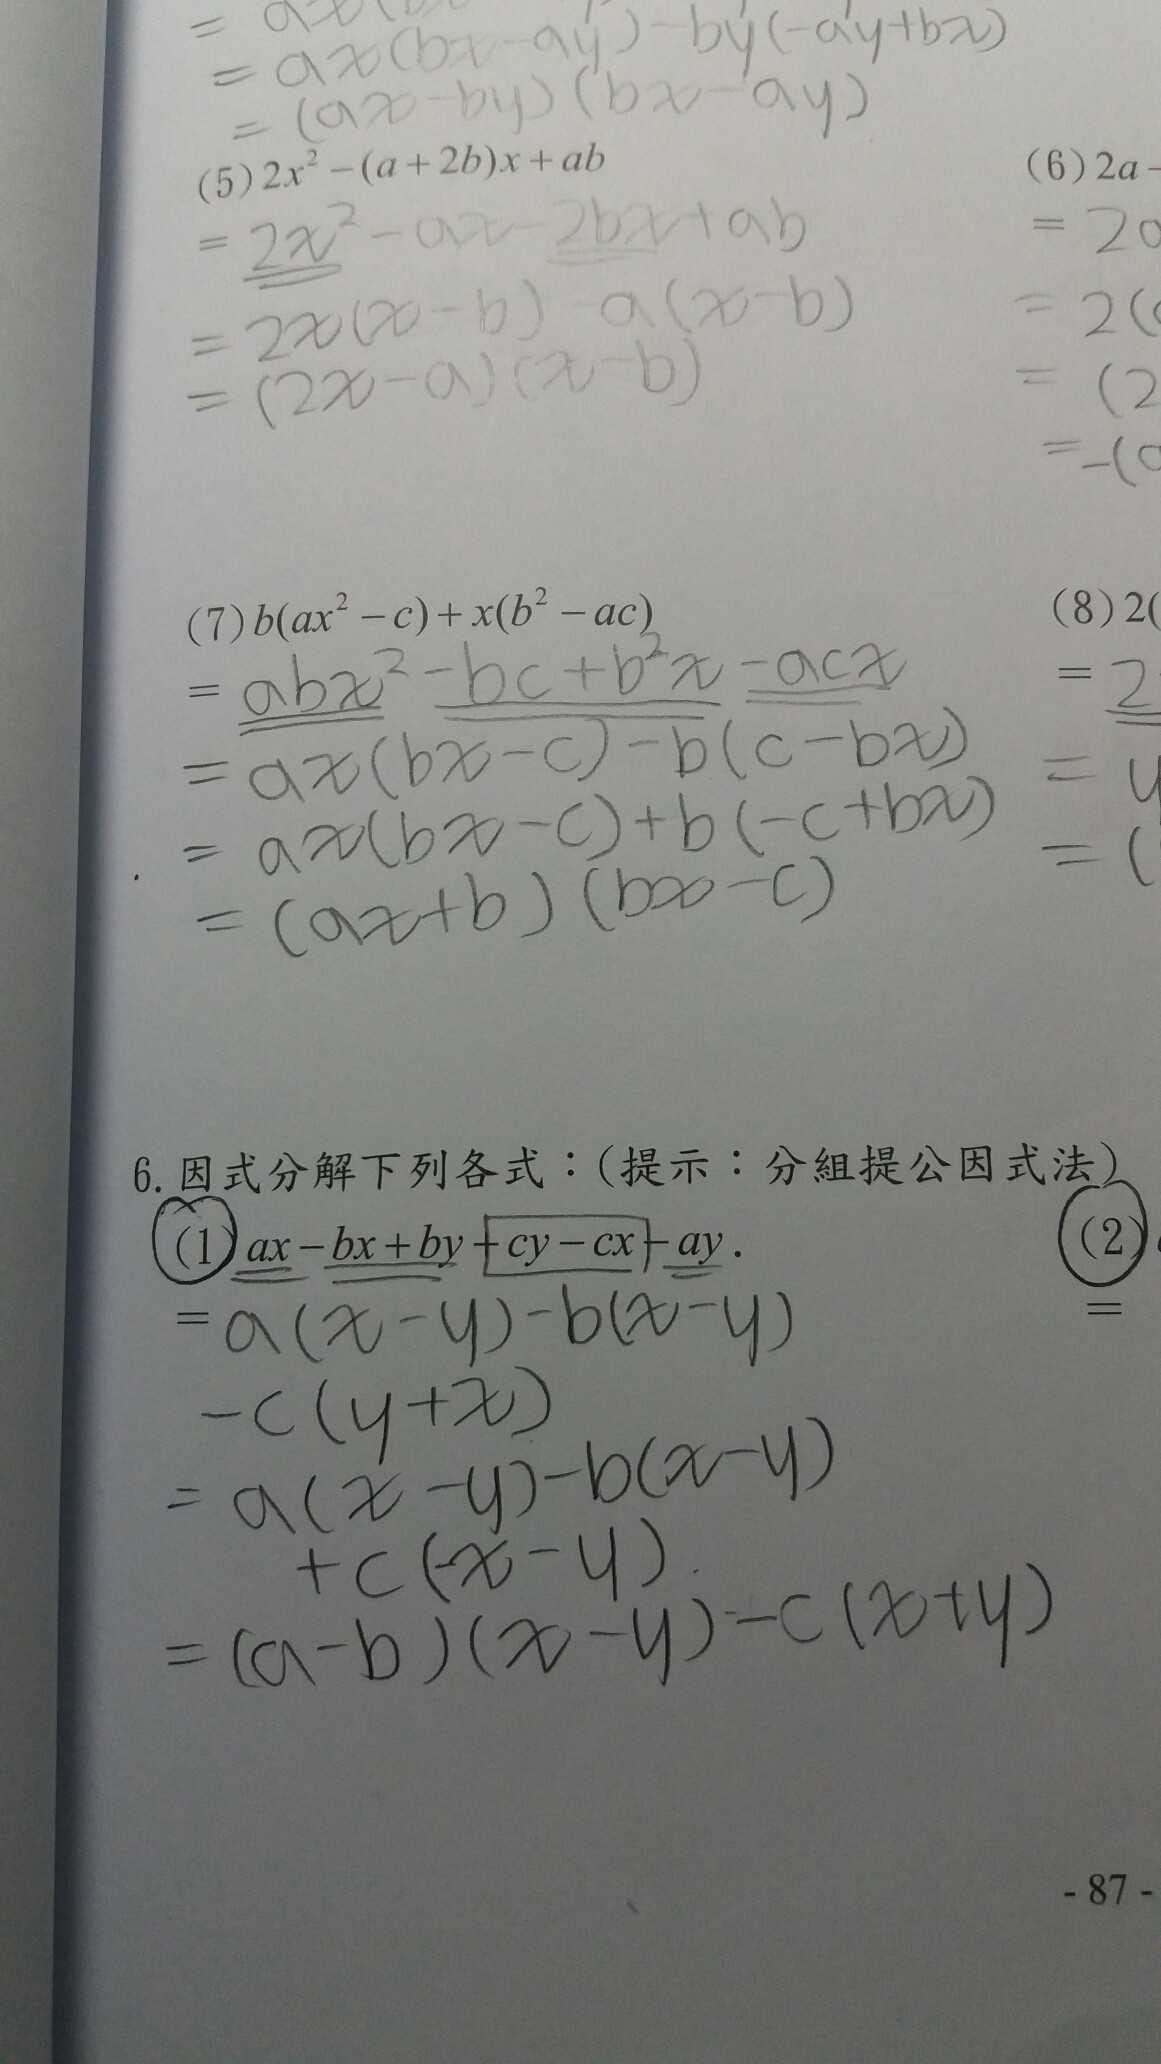 = ax(b
= ax(bx-ay)-by(-ay+bx)
= (ax-by)(bx-ay)
(5) 2x² -(a+2b)x+ab
= 2x²-ax-2bx+ab
= 2x(x-b) a(x-b)
= (2x-a)(x-b)
(6) 2a-
= 2a
= 2(
= (2
=-(a
(7) b(ax² -c)+x(b² -ac)
= abx²-bc+b²x-acx
= ax(bx-c)-b(c-bx)
= ax(bx-c)+b(-c+bx)
= (ax+b)(bx-c)
(8) 2(
= 2
= y
= (
6. 因式分解下列各式：(提示：分組提公因式法)
(1) ax-bx+by+cy-cx-ay.
= a(x-y)-b(x-y)
-c(y+x)
= a(x-y)-b(x-y)
+c(-x-y).
= (a-b)(x-y)-c(x+y)
(2)
=
- 87 -